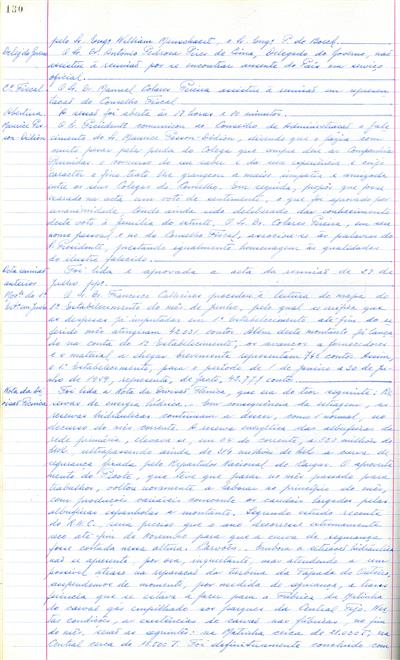 130
pelo Sr. Engº William Mensckaert, e Sr. Engº P. de Boeck.
Delegdo Govern. O Sr. Dr. António Pedrosa Pires de Lima, Delegado do Governo, não
assistiu à reunião por se encontrar ausente do País em serviço
oficial.
Cº Fiscal. O Sr. Dr. Manuel Colares Pereira assistiu à reunião em represen-
tação do Conselho Fiscal.
Abertura. A sessão foi aberta às 17 horas e 10 minutos.
Maurice Pi- O Sr. Presidente comunicou ao Conselho de Administração o fale-
cimento do Sr. Maurice
muito pesar pela perda do Colega que sempre deu à Companhia
Reunidas o concurso do seu saber e da sua experiência e cujo
caracter e fino trato lhe grangeou a maior simpatia e amizade
entre os seus Colegas do Conselho. Em seguida, propôs que fosse
exarado na acta um voto de sentimento, o que foi aprovado por
unanimidade, tendo ainda sido deliberado dar conhecimento
deste voto à família do extinto. O Sr. Dr. Colares Pereira, em seu
nome pessoal e no do Conselho Fiscal, associou-se às palavras do
Sr. Presidente, prestando igualmente homenagem às qualidades
do ilustre falecido.
Acta reunião Foi lida e aprovada a acta da reunião de 23 de
anterior Julho ppº.
Mapª do 1º O Sr. Dr. Francisco procedeu à leitura do mapa do
Estº em Junho 1º estabelecimento do mês de Junho, pelo qual se verifica que
as despesas já imputadas em 1º estabelecimento até fim do re-
ferido mês atingiram 42.031 contos. Além deste montante já lança-
do na conta de 1º estabelecimento, os avanços a fornecedores
e o material a chegar brevemente representam 746 contos. Assim,
o 1º estabelecimento, para o período de 1 de Janeiro a 30 de Ju-
nho de 1959, representa, de facto, 42.777 contos.
Nota da Di- Foi lida a Nota da Direcção Técnica, que era do teor seguinte: Re-
recção Técnica. servas de energia hídrica. Em consequência da estiagem, as
reservas hidráulicas continuam a descer, como é normal, no
decurso do mês corrente. A reserva energética das albufeiras da
rede primária, elevava-se, em 04 do corrente, a 921 milhões de
kWh, ultrapassando ainda de 314 milhões de kWh a curva de
segurança fixada pelo Repartidor Nacional de Cargas. O aproveita-
mento do Picote, que teve que parar no mês passado para
trabalhos, voltou novamente a laborar no princípio do mês,
com produções variáveis consoante os caudais largados pelas
albufeiras espanholas a montante. Segundo estudo recente
do R.N.C. seria preciso que o ano decorresse extremamente
seco até fim de Novembro para que a curva de segurança
fosse cortada nessa altura. Carvões. Embora a situação hidráulica
não se apresente, por ora, inquietante, mas atendendo a um
possível atraso na reparação da turbina da Tapada do Outeiro,
suspendemos de momento, por medida de segurança, a trans-
ferência que se estava a fazer para a Fábrica da Matinha
do carvão gás empilhado nos parques da Central Tejo. Nes-
tas condições, as existências de carvão nas fábricas, no fim
do mês, serão as seguintes: na Matinha cerca de 21.000 T, na
Central cerca de 18.000 T. Foi definitivamente concluido com